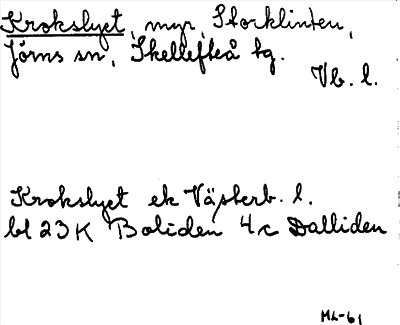 Krokslyet, myr, Storklinten,
Jörns sn, Skellefteå tg.
Vb. l.
Krokslyet ek Västerb. l.
bl 23K Boliden 4c Dalliden
ML-61